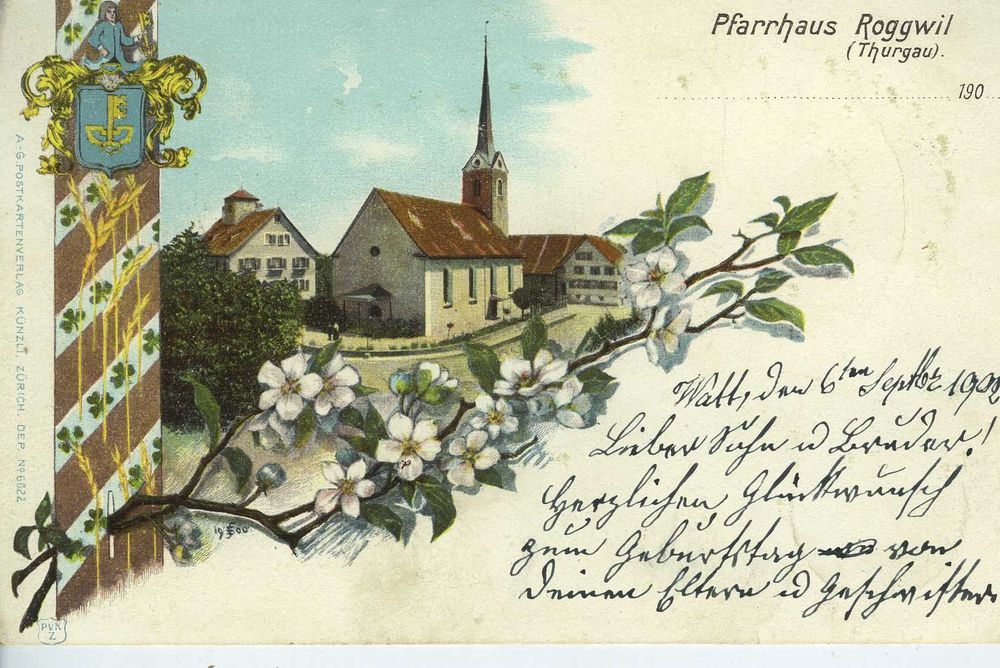 Pfarrhaus Roggwil
(Thurgau).
190
A.-G. POSTKARTENVERLAG KÜNZLI, ZÜRICH. DEP. No 6022
Watt, den 6ten Septbr 190
Lieber Sohn u Bruder!
Herzlichen Glückwunsch
zum Geburtstag von
deinen Eltern u Geschwister
19 00
PVK
Z